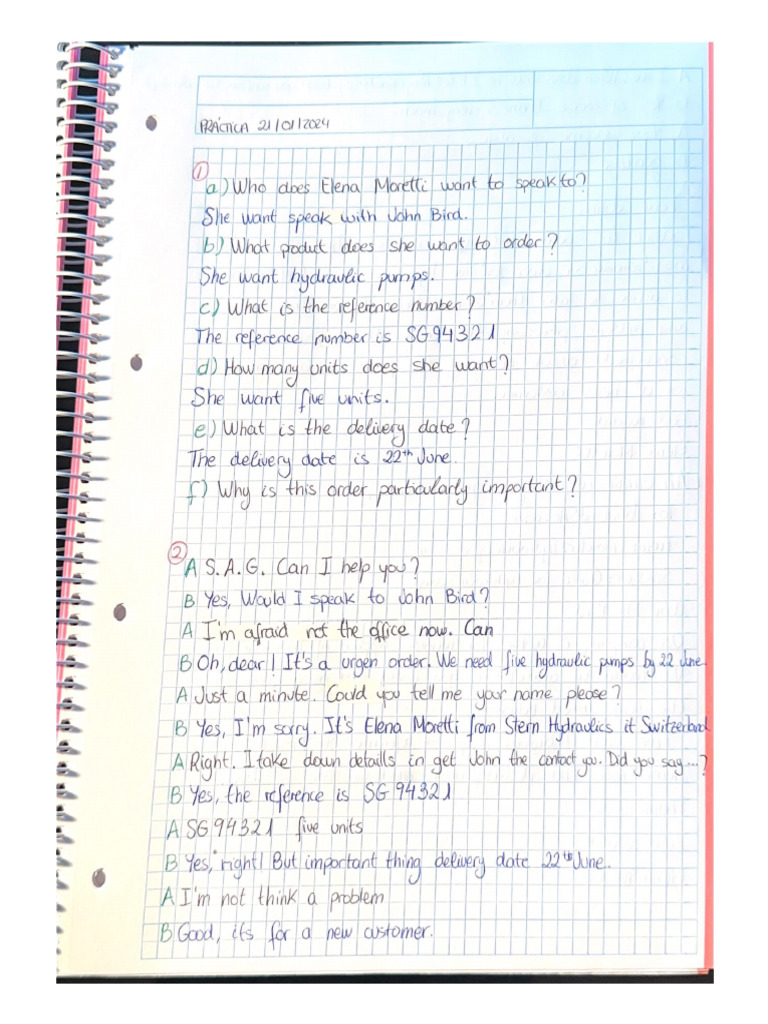 PRÁCTICA 21/01/2024
1
a) Who does Elena Moretti want to speak to?
She want speak with John Bird.
b) What poduct does she want to order?
She want hydraulic pumps.
c) What is the reference number?
The reference number is SG94321
d) How many units does she want?
She want five units.
e) What is the delivery date?
The delivery date is 22th June.
f) Why is this order particularly important?
2
A S.A.G. Can I help you?
B Yes, Would I speak to John Bird?
A I'm afraid not the office now. Can
B Oh, dear! It's a urgen order. We need five hydraulic pumps by 22 June
A Just a minute. Could you tell me your name please?
B Yes, I'm sorry. It's Elena Moretti from Stern Hydraulics it Switzerland
A Right. I take down detaills in get John the contact you. Did you say...?
B Yes, the reference is SG 94321
A SG94321 five units
B Yes, right! But important thing delivery date 22th June.
A I'm not think a problem
B Good, its for a new customer.